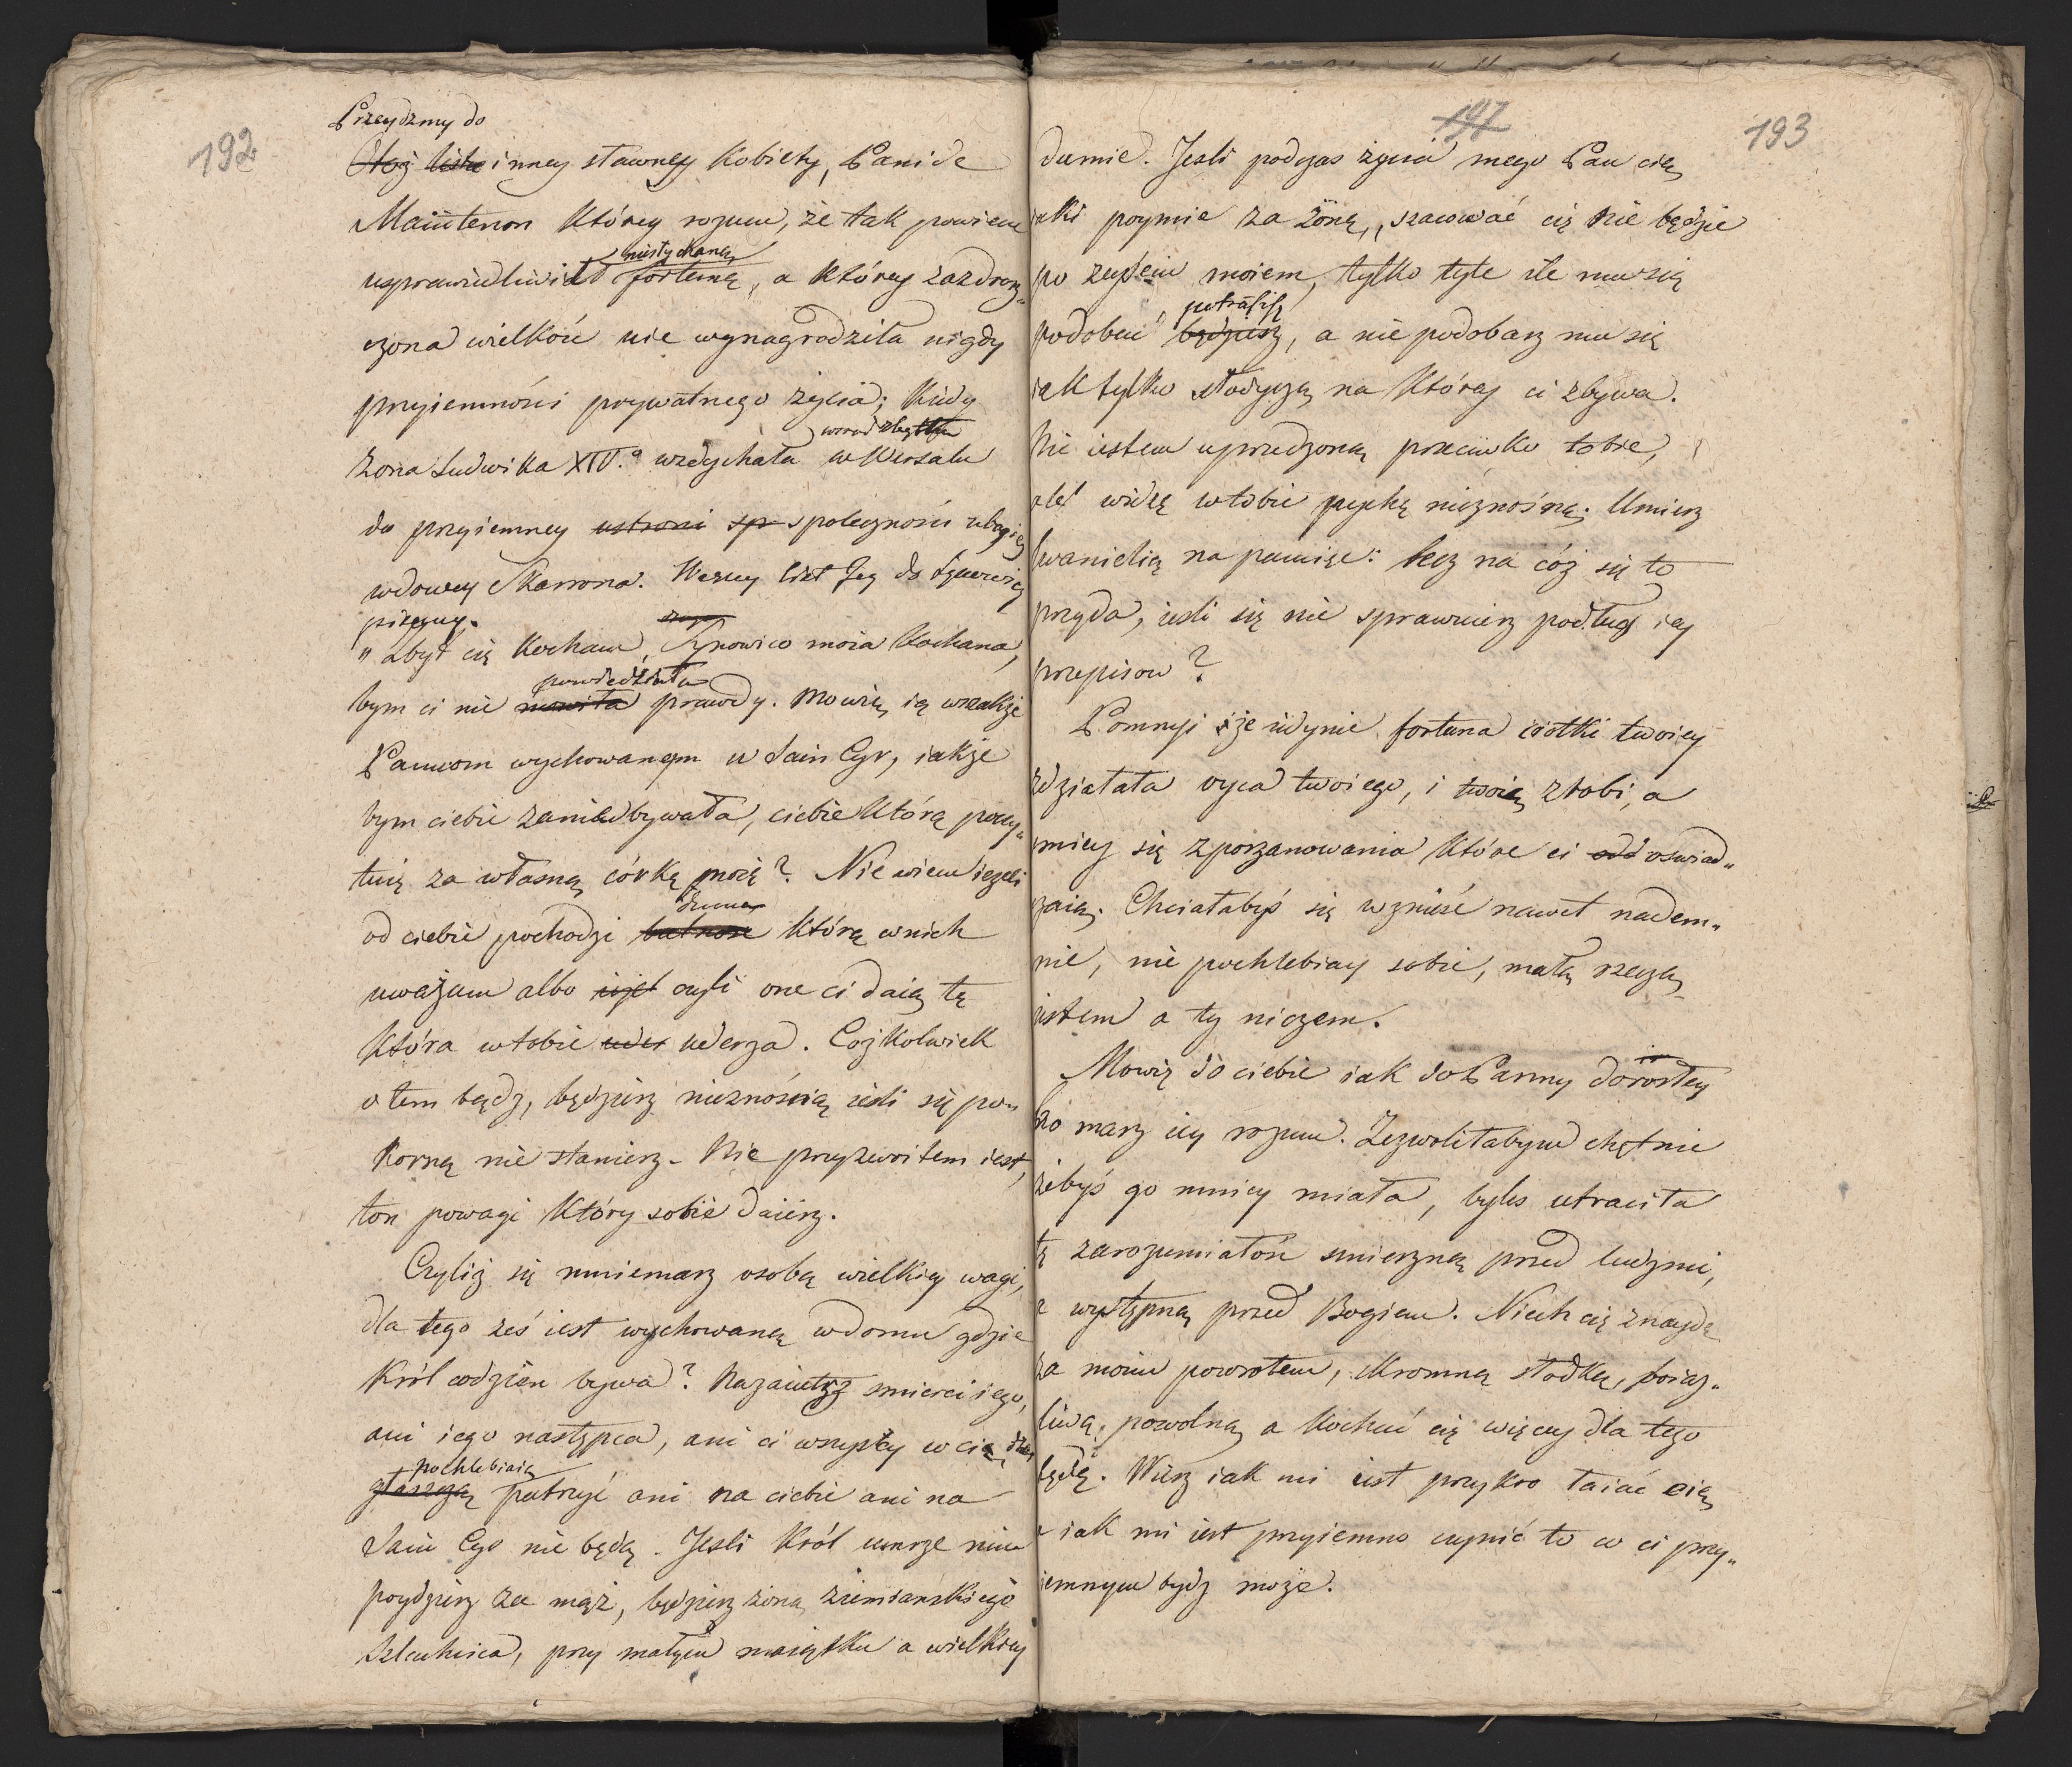 192
Przeydzmy do
Otoż listu inney sławney Kobiety, Pani de
Maintenon Którey rozum, że tak powiem
niesłychaną
usprawiedliwił fortunę, a którey zazdrosz„
czona wielkość nie wynagrodziła nigdy
przyiemności prywatnego życia; Kiedy
wsrod zbytku
żona Ludwika XIV.o wzdychała w Wersalu
do przyiemney ustroni sp społeczności ubogiey
wdowy Skarrona. Weźmy list Jey do Synowicy
pisany.
„ Zbyt cię Kocham, Synowico moia Kochana,
powiedziała
bym ci nie mowiła prawdy. Mowię ią wszakże
Pannom wychowanym w Sain Cyr, iakże
bym ciebie zaniedbywała, ciebie Którą poczy„
tuię za własną córkę moię? Nie wiem ieżeli
duma
od ciebie pochodzi Którą w nich
uważam albo czyli one ci daią tę
Która w tobie uder uderza. Cożkolwiek
o tem bądz, będziesz nieznośną iesli się po„
korną nie staniesz. Nie przyzwoitem iest,
ton powagi Który sobie daiesz.
Czyliż się mniemasz osobą wielkiey wagi,
dla tego żeś iest wychowaną w domu gdzie
Król codzien bywa? Nazaiutrz smierci iego,
ani iego następca, ani ci wszyscy co cię dziś
pochlebiaią
głaszczą patrzyć ani na ciebie ani na
Sain Cyr nie będą. Jesli Król umrze nim
poydziesz za mąż, będziesz żoną ziemianskiego
szlachcica, przy małym maiątku a wielkiey
197
193
dumie. Jesli podczas życia mego Pan cię
iaki poymie za żonę, szacować cię nie będzie
po zeyściu moiem, tylko tyle ile mu się
potrafisz
podobać będziesz, a nie podobasz mu się
iak tylko słodyczą na Którey ci zbywa.
Nie iestem uprzedzoną przeciwko tobie,
ale widzę w tobie pychę nieznośną. Umiesz
Ewanielią na pamięć: lecz na cóż się to
przyda, iesli się nie sprawuiesz podług iey
przepisow?
Pomnyi że iedynie fortuna ciotki twoiey
zdziałała oyca twoiego, i twoią zrobi, a
smiey się z poszanowania Które ci oświad„
czaią. Chciałabyś się wznieść nawet nadem„
nie, nie pochlebiay sobie, małą rzeczą
iestem a ty niczem.
Mowię do ciebie iak do Panny dorosłey
bo masz iey rozum. Zezwoliłabym chętnie
żebyś go mniey miała, byles utraciła
tę zarozumiałość smieszną przed ludzmi,
a występną przed Bogiem. Niech cię znaydę
za moim powrotem, skromną słodką, boiaz„
liwą, powolną a Kochać cię więcey dla tego
będę. Wiesz iak mi iest przykro łaiać cię
a iak mi iest przyiemno czynić to co ci przy„
iemnym bydz może.